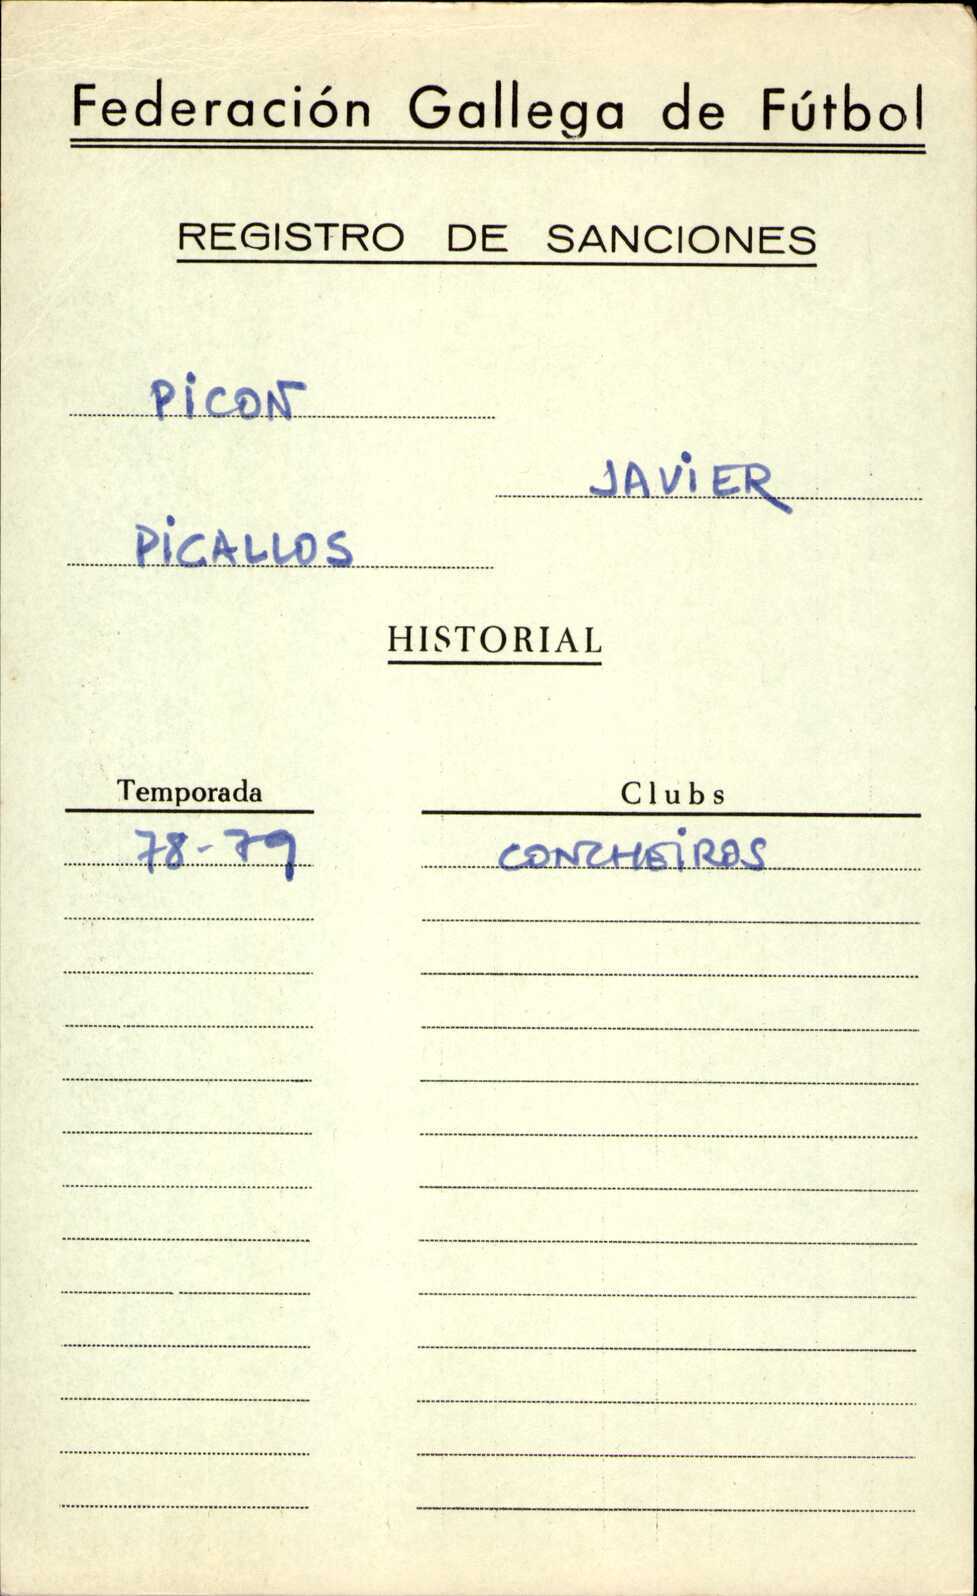 Federación Gallega de Fútbol
REGISTRO DE SANCIONES
PICON
JAVIER
PICALLOS
HISTORIAL
Temporada Clubs
78-79 CONCHEIROS